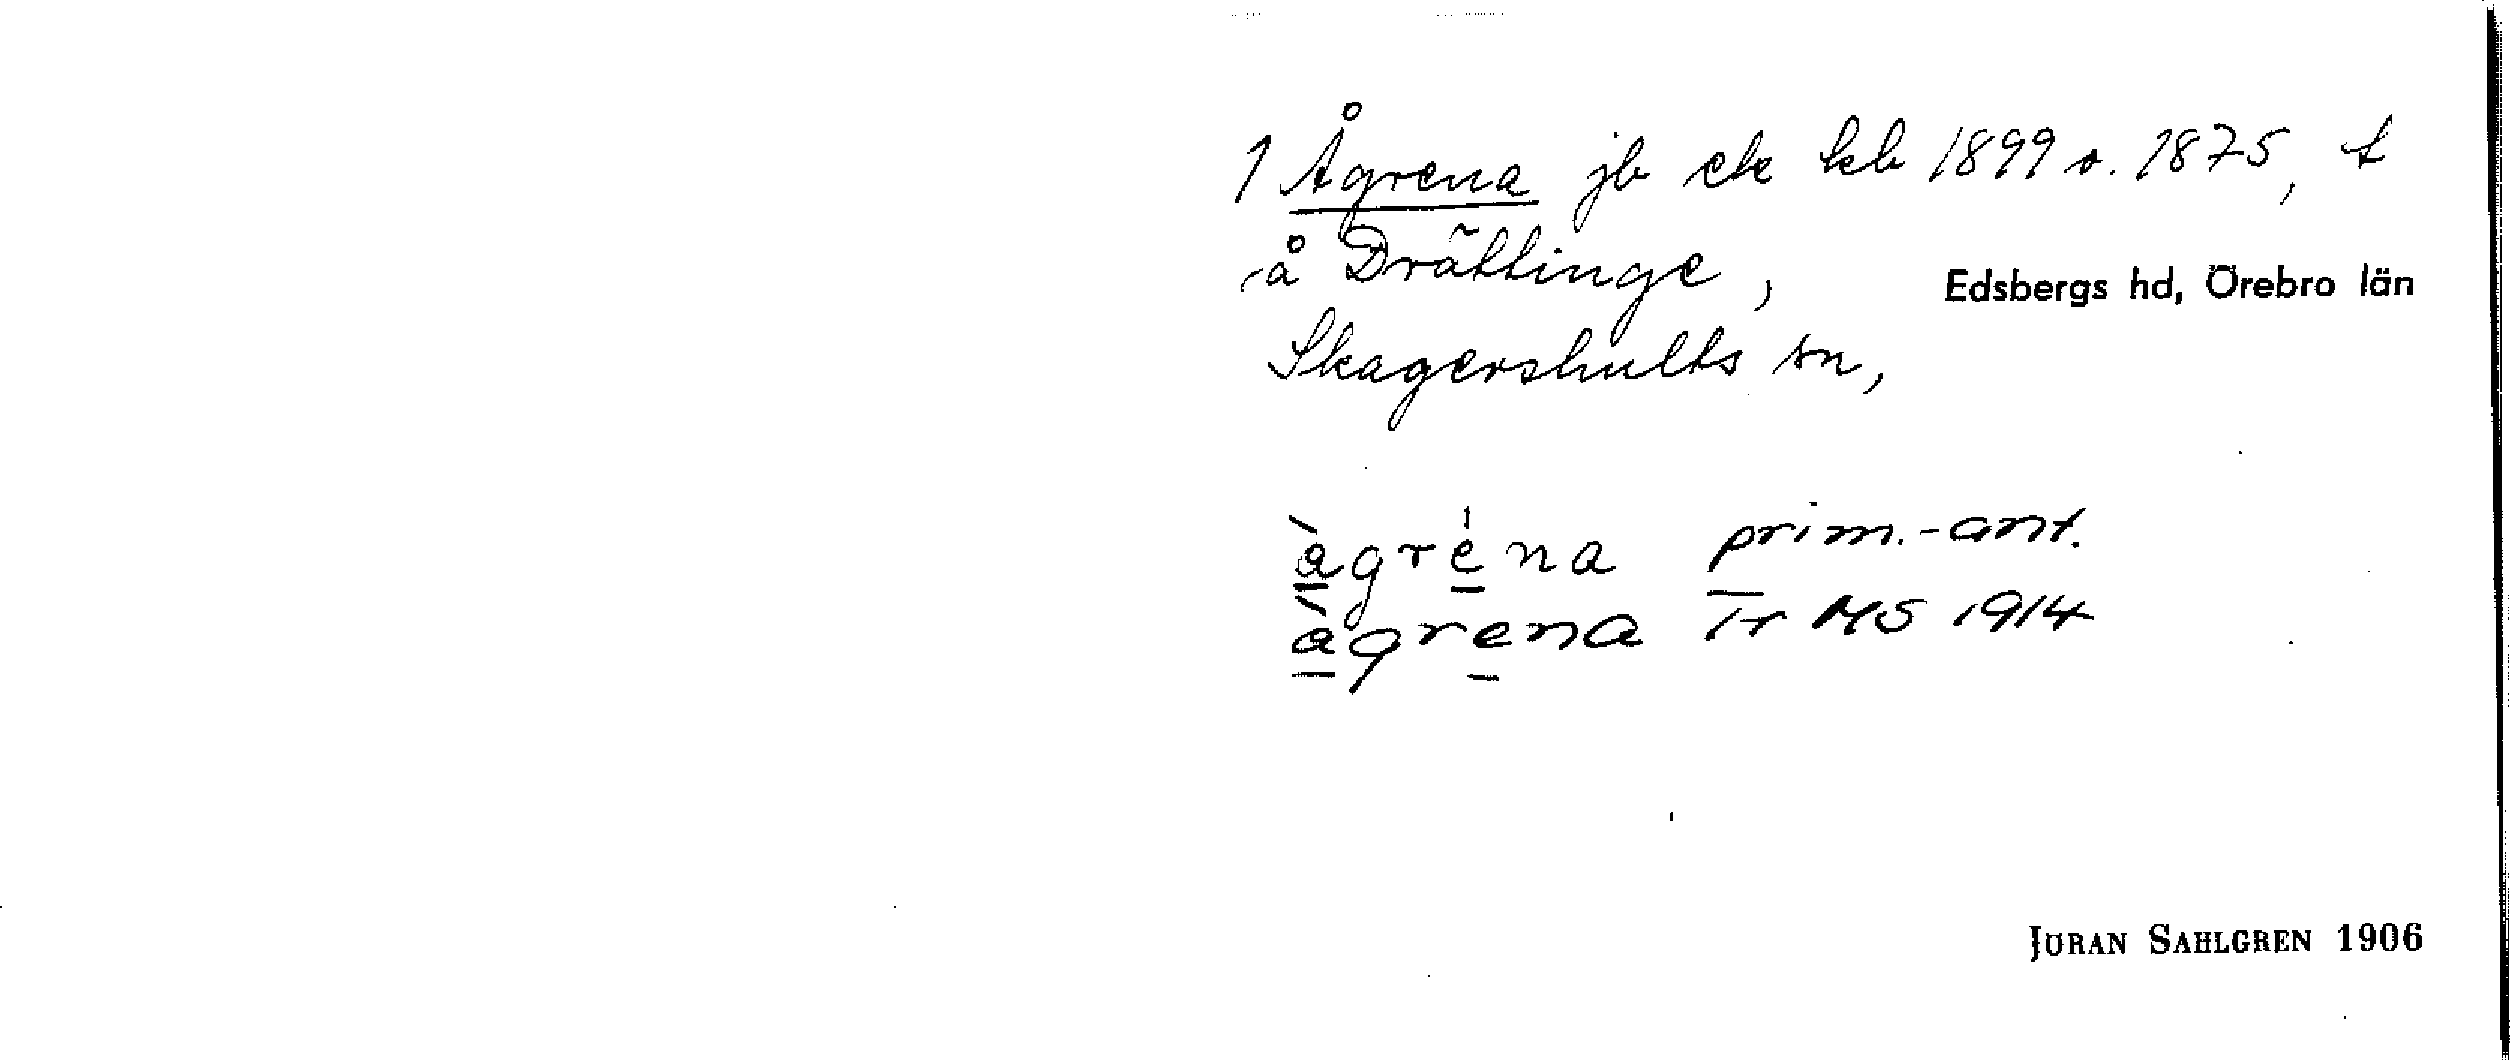 1 Ågrena jb ek kb 1899 o. 1875, t
å Drättinge,
Edsbergs hd, Örebro län
Skagershults sn,
ågréna prim.-ant.
ågrena Tr MS 1914
JÖRAN SAHLGREN 1906